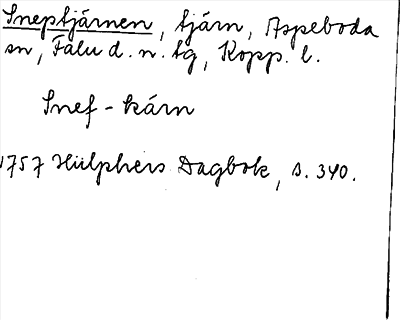 Sneptjärnen, tjärn, Aspeboda
sn, Falu d. n. tg, Kopp. l.
Snef-kärn
1757 Hülphers Dagbok, s. 340.